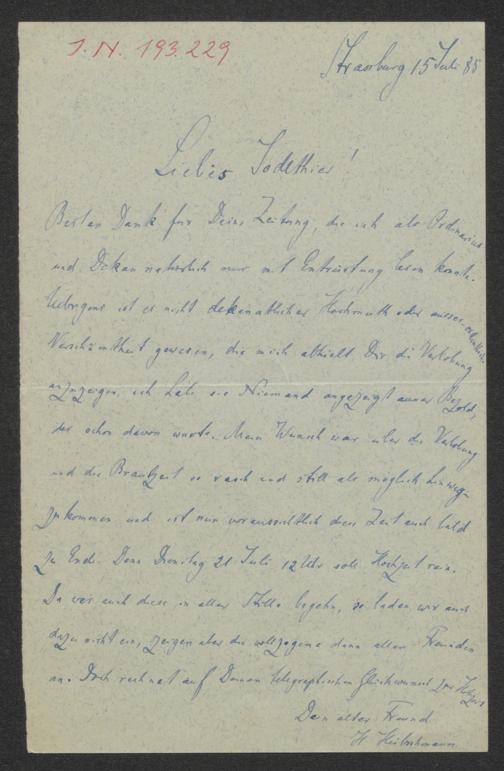 J.N. 193.229
Strassburg 15 Juli 85
Liebes Jodethier!
Besten Dank für Deine Zeitung, die ich als Ordinarius
und Dekan natürlich nur mit Entrüstung lesen konnte.
Uebrigens ist es nicht dekanatlicher Hochmuth oder ausser
Verschämtheit gewesen, die mich abhielt Dir die Verlobung
anzuzeigen, ich habe sie Niemand angezeigt ausser Bezold,
der schon davon wusste. Mein Wunsch war über die Verlobung
und die Brautzeit so rasch und still als möglich hinweg-
zukommen und ist nun voraussichtlich diese Zeit auch bald
zu Ende. Denn Dienstag 21 Juli 12 Uhr soll Hochzeit sein.
Da wir auch diese in aller Stille begehn, so laden wir auch
dazu nicht ein, zeigen aber die vollzogene dann allen Freunden
an. Doch rechnet auf Deinen telegraphischen Glückwunsch zur Hochzeit
Dein alter Freund
H. Hübschmann.